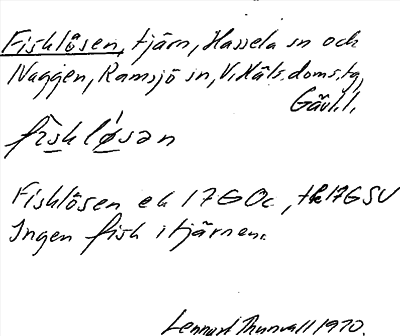 Fisklösen, tjärn, Hassela sn och
Naggen, Ramsjö sn, V. Häls. doms.tg,
Gävl. l.
fisklø̀sən
Fisklösen ek 17G0c, tk17GSV
Ingen fisk i tjärnen.
Lennart Thunvall 1970.